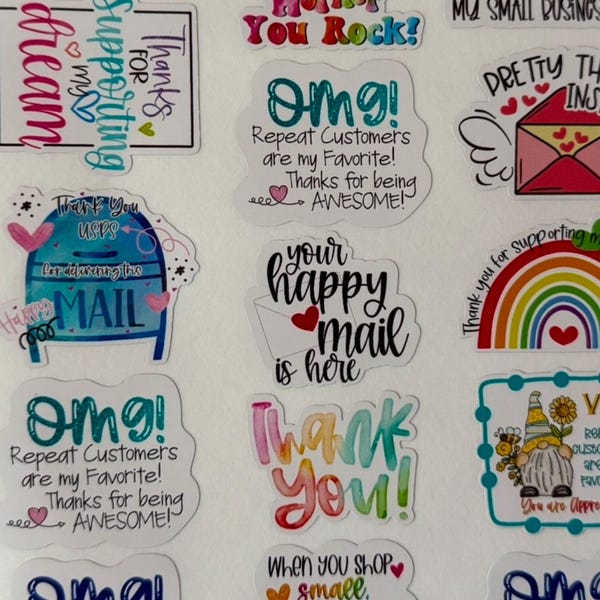 Thanks
FOR
Supporting
my
dream
You Rock!
MY SMALL BUSINES
OMG!
Repeat Customers
are my Favorite!
Thanks for being
AWESOME!
PRETTY TH
INS
Thank You
USPS
for delivering this
Happy
MAIL
your
happy
mail
is here
Thank you for supporting m
OMG!
Repeat Customers
are my Favorite!
Thanks for being
AWESOME!
Thank
You!
V
Re
custo
are
Favo
You are Appre
WHEN YOU SHOP
small,
OMG!
OMG!